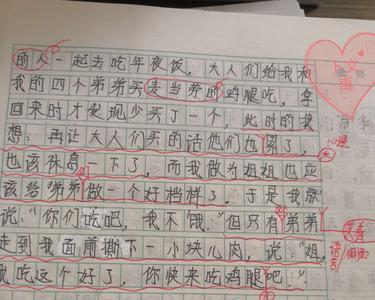 的人一起去吃年夜饭，大人们给我和
我的四个弟弟买麦当劳的鸡腿吃，拿
回来时才发现少买了一个，此时的我
想：再让大人们买的话他们也累了，
也该休息一下了，而我做为姐姐也应
该给弟弟做一个好档样了，于是我就
说：“你们吃吧，我不饿。”但只有弟弟
走到我面前撕下一小块儿肉，说：“姐，
我吃这个好了，你快来吃鸡腿吧！”
心理
语言